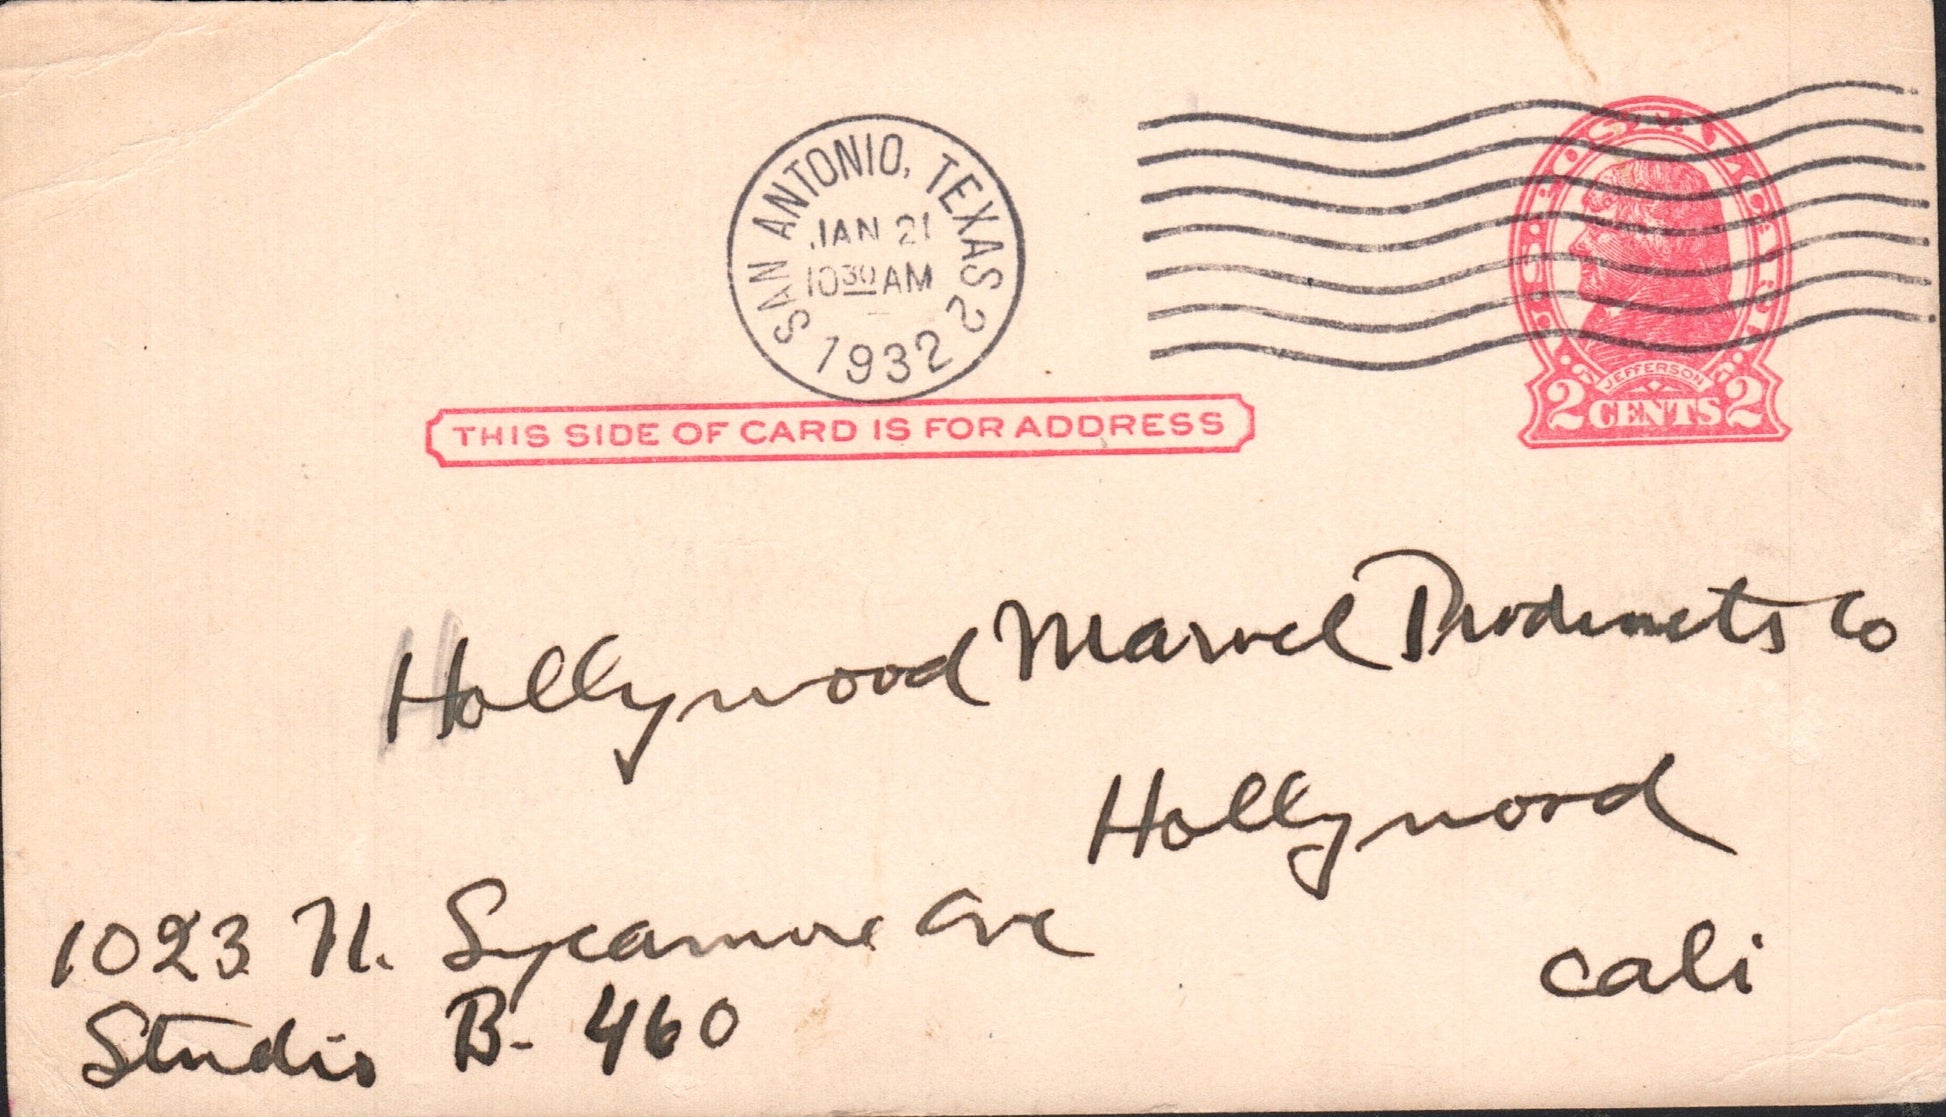 SAN ANTONIO, TEXAS 2
JAN 21
10 30 AM
1932
U.S. POSTAGE
JEFFERSON
2 CENTS 2
THIS SIDE OF CARD IS FOR ADDRESS
Hollywood Marvel Products Co
Hollywood
Cali
1023 N. Sycamore Ave
Studio B-460